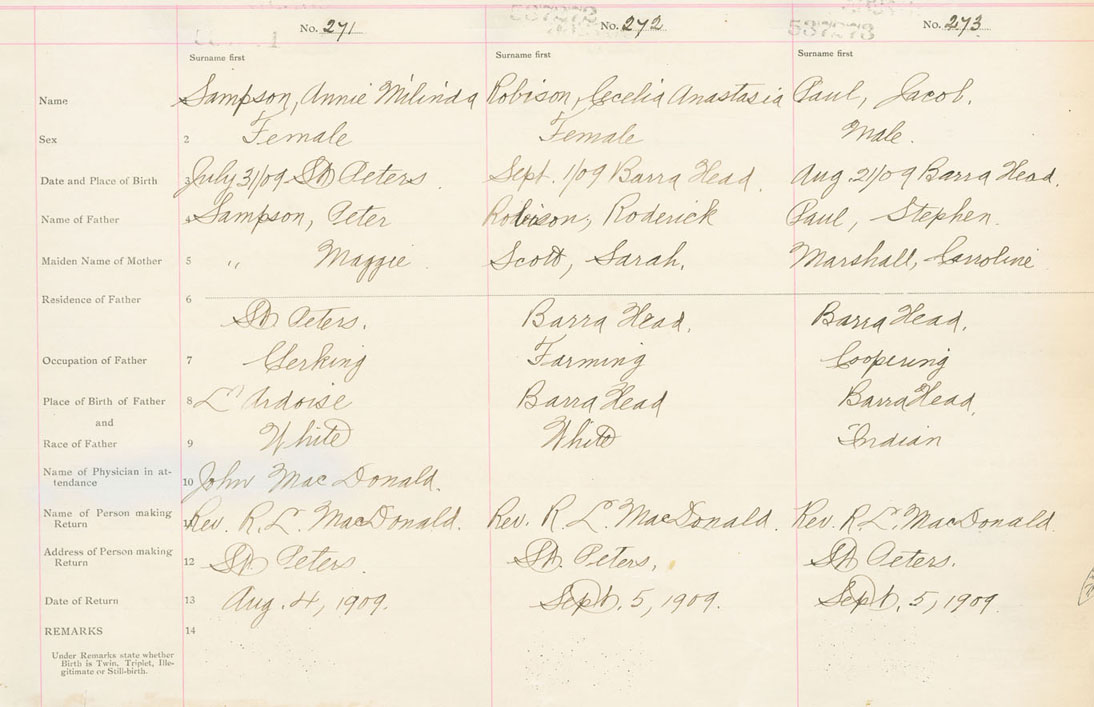 No. 271 No. 272 No. 273
537273
Surname first Surname first Surname first
Name Sampson, Annie Milinda Robison, Cecelia Anastasia Paul, Jacob.
Sex 2 Female Female Male.
Date and Place of Birth 3 July 31/09 St Peters. Sept. 1/09 Barra Head. Aug. 21/09 Barra Head.
Name of Father 4 Sampson, Peter Robison, Roderick Paul, Stephen.
Maiden Name of Mother 5 " Maggie. Scott, Sarah. Marshall, Carroline
Residence of Father 6
St Peters. Barra Head. Barra Head.
Occupation of Father 7 Clerking Farming Coopering
Place of Birth of Father 8 L'Ardoise Barra Head Barra Head.
and
Race of Father 9 White White Indian
Name of Physician in at-
tendance 10 John MacDonald.
Name of Person making
Return 11 Rev. R. L. MacDonald. Rev. R. L. MacDonald. Rev. R. L. MacDonald.
Address of Person making
Return 12 St Peters. St. Peters. St Peters.
Date of Return 13 Aug. 4, 1909. Sept. 5, 1909. Sept. 5, 1909.
REMARKS 14
Under Remarks state whether
Birth is Twin, Triplet, Ille-
gitimate or Still-birth.